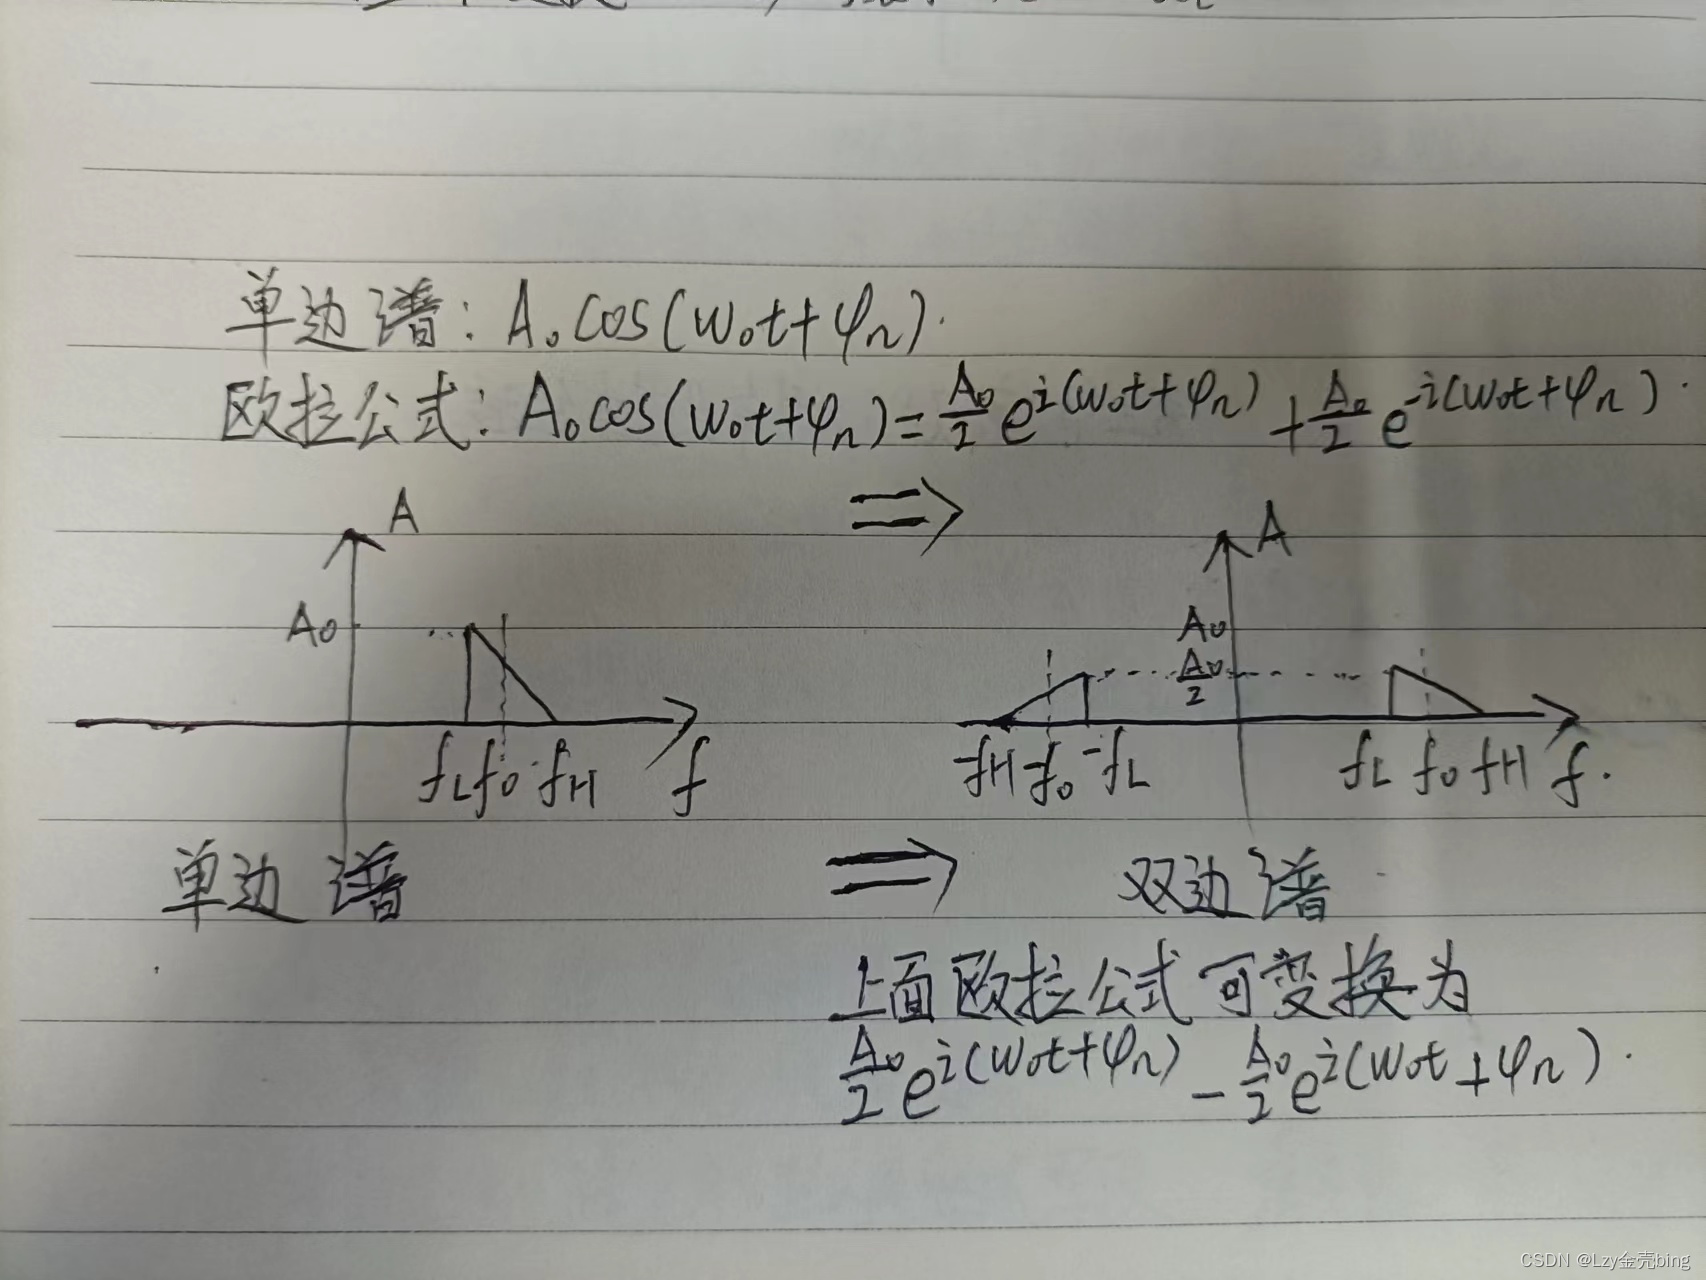 单边谱: A₀cos(w₀t+φn).
欧拉公式: A₀cos(w₀t+φn)=A₀/2 e^i(w₀t+φn) + A₀/2 e^-i(w₀t+φn).
⇒
A
A₀
fL f₀ fH f
A
A₀
A₀/2
-fH -f₀ -fL fL f₀ fH f.
单边谱 ⇒ 双边谱
上面欧拉公式可变换为
A₀/2 e^i(w₀t+φn) - A₀/2 e^i(w₀t+φn).
CSDN @Lzy金壳bing